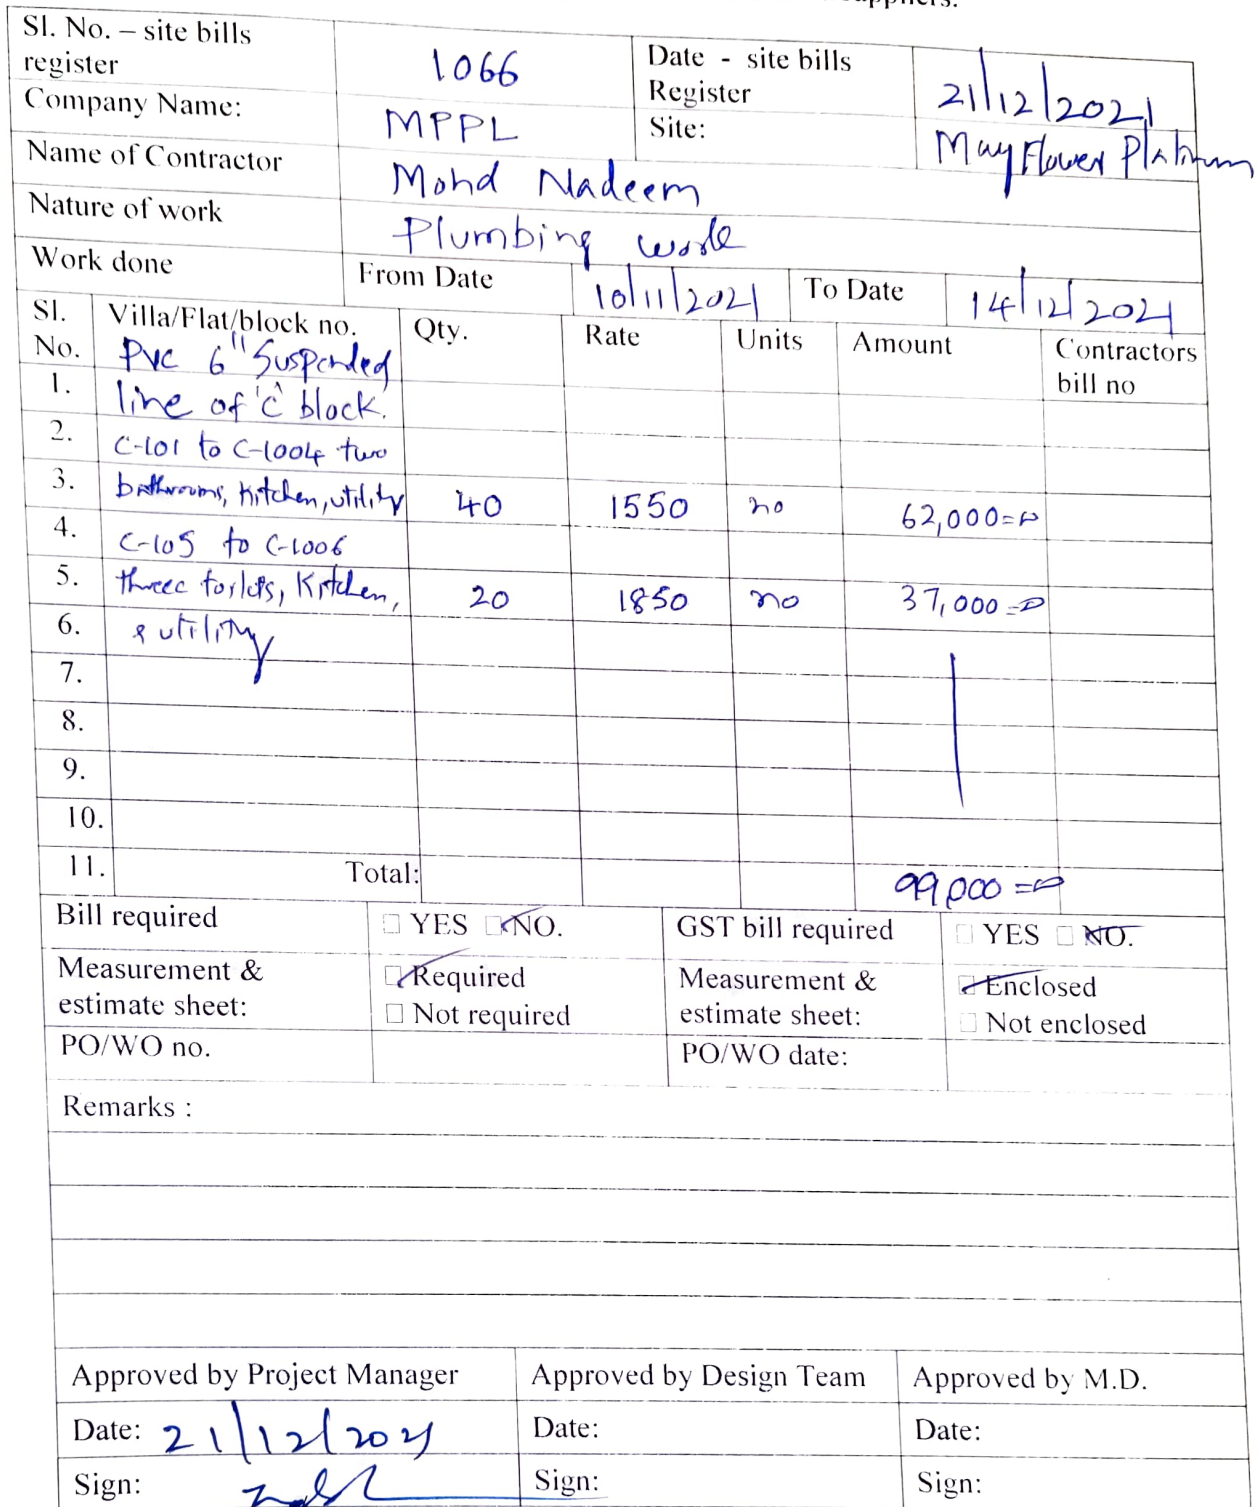 Sl. No. – site bills register 1066 Date - site bills Register 21/12/2021
Company Name: MPPL Site: May Flower Platinum
Name of Contractor Mohd Nadeem
Nature of work Plumbing work
Work done From Date 10/11/2021 To Date 14/12/2021
Sl. No. Villa/Flat/block no. Qty. Rate Units Amount Contractors bill no
PVC 6" Suspended
1. line of 'C' block.
2. C-101 to C-1004 two
3. bathrooms, kitchen, utility 40 1550 no 62,000=00
4. C-105 to C-1006
5. three toilets, Kitchen, 20 1850 no 37,000=00
6. & utility
7.
8.
9.
10.
11. Total: 99,000=00
Bill required YES NO. GST bill required YES NO.
Measurement & estimate sheet: Required Measurement & estimate sheet: Enclosed
Not required Not enclosed
PO/WO no. PO/WO date:
Remarks :
Approved by Project Manager Approved by Design Team Approved by M.D.
Date: 21/12/2021 Date: Date:
Sign: Sign: Sign: